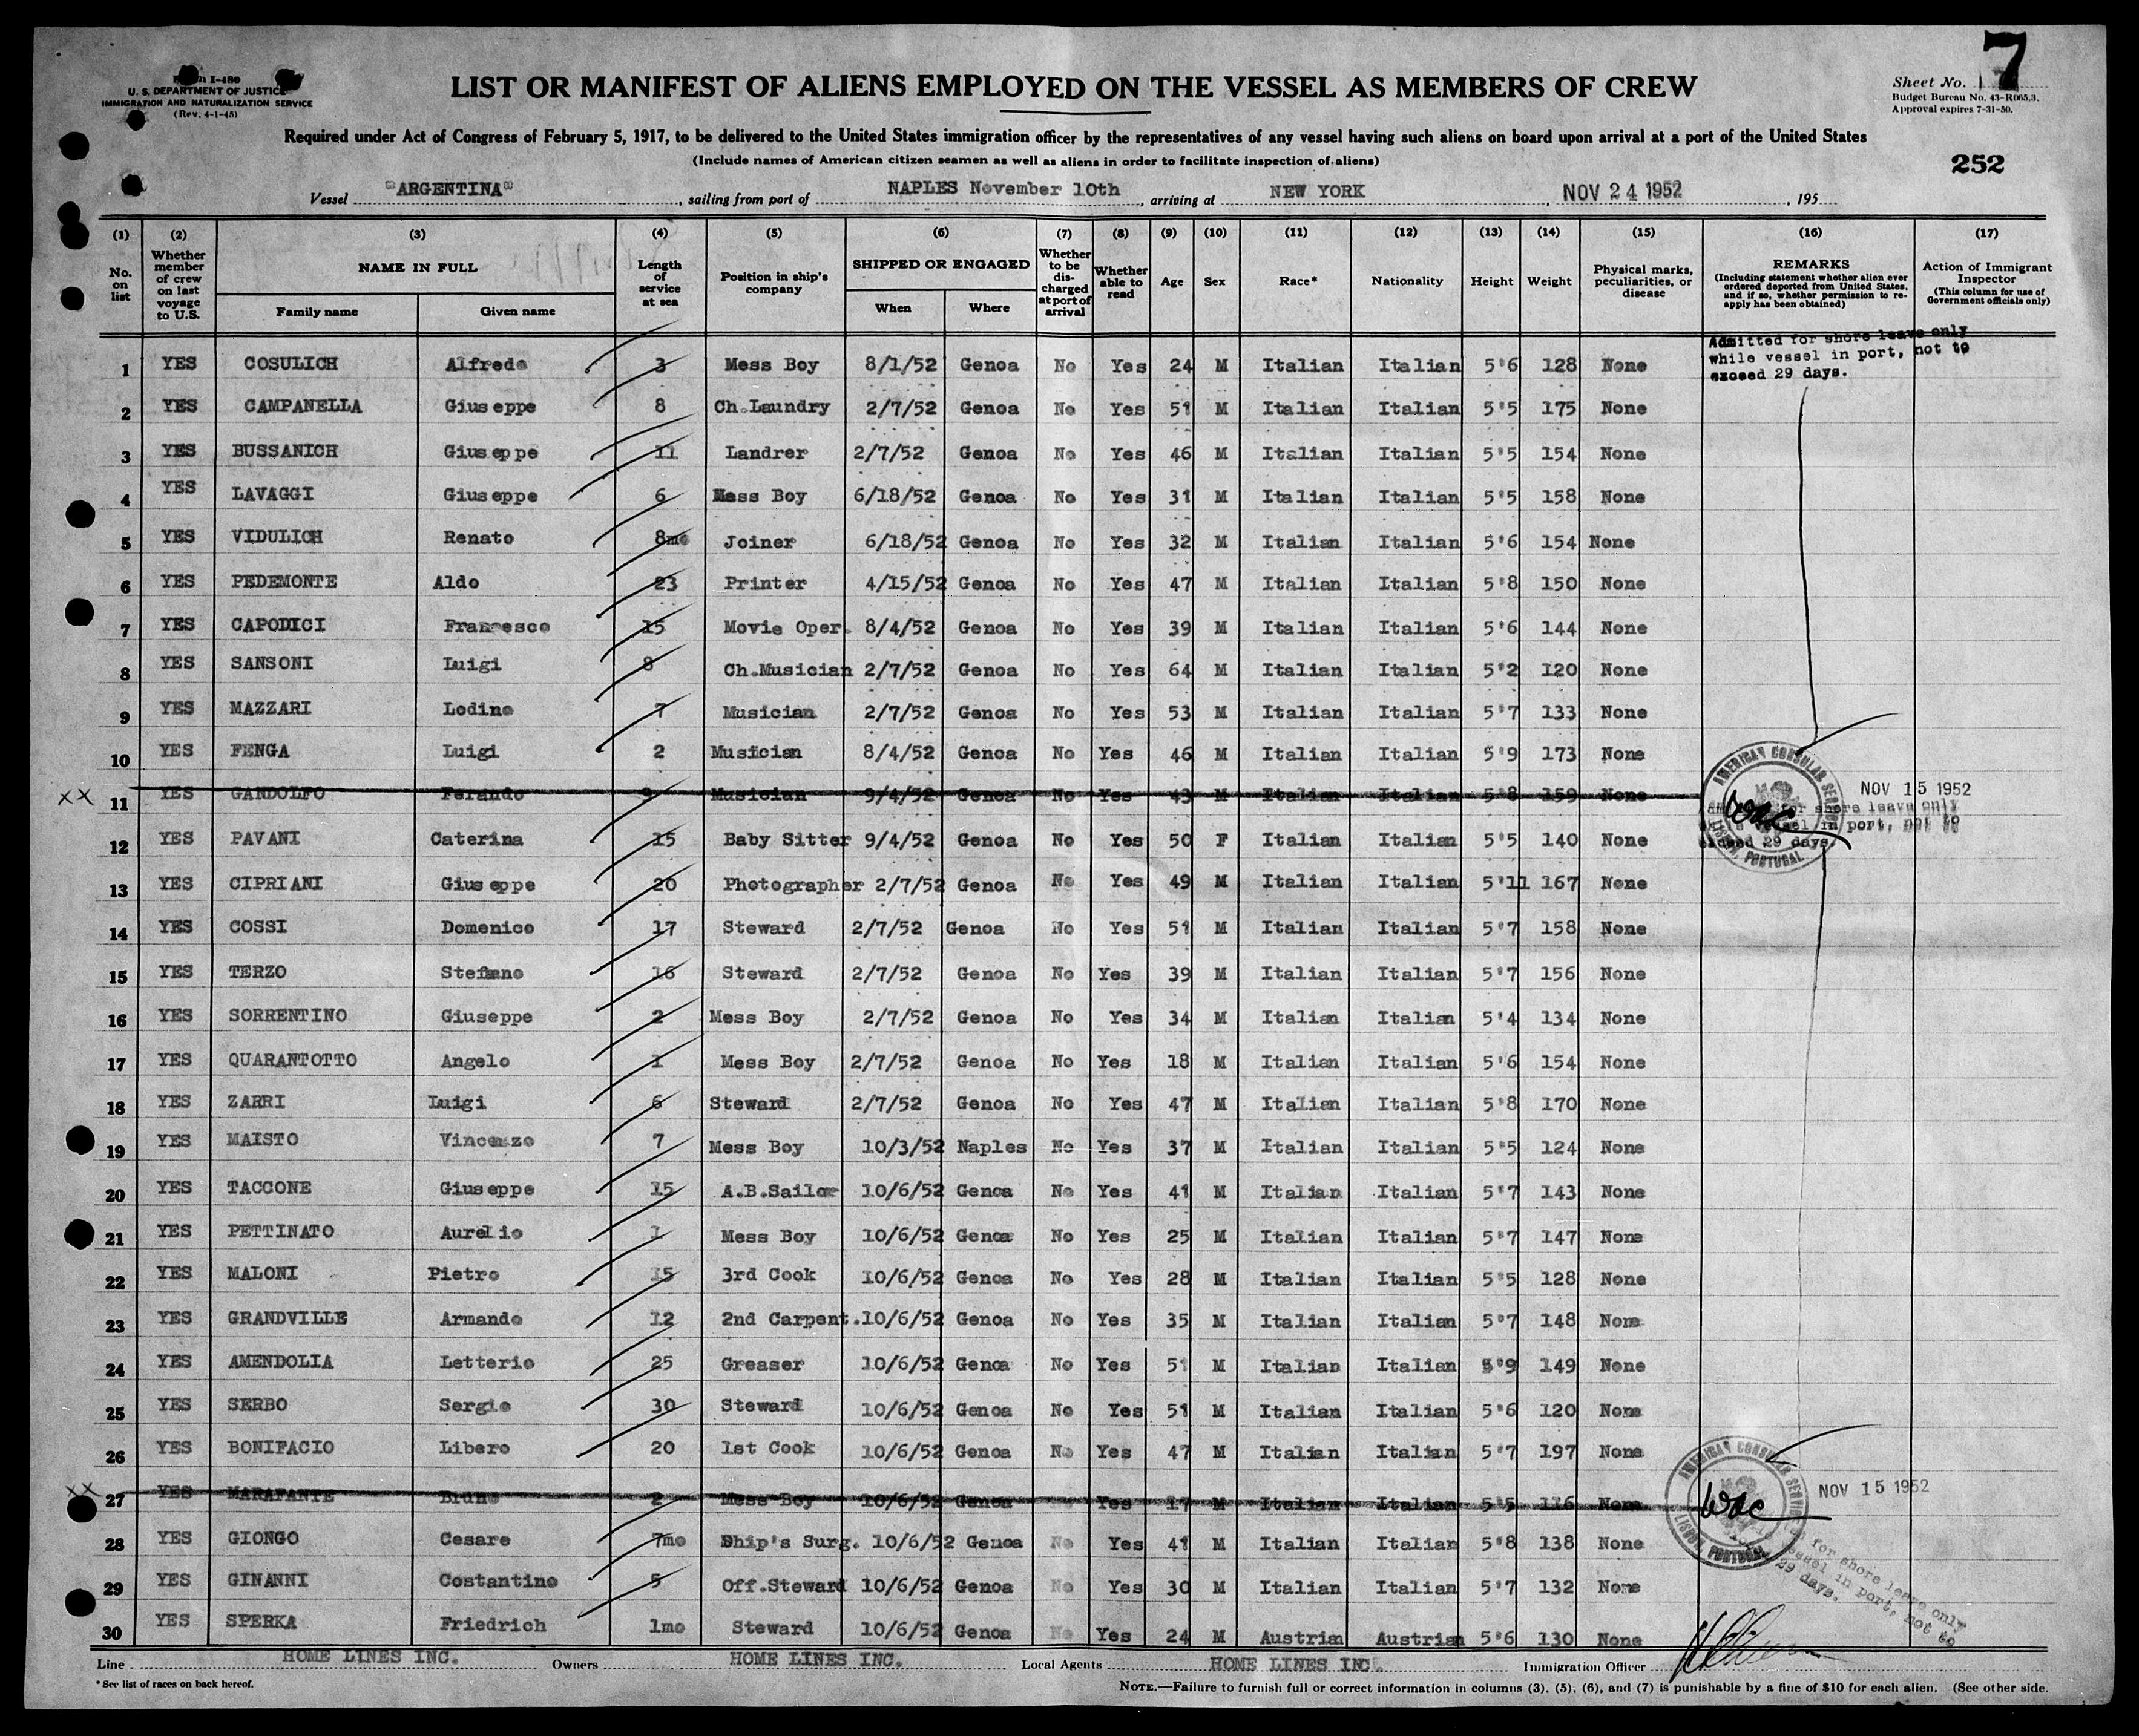 Form I-480
U. S. DEPARTMENT OF JUSTICE
IMMIGRATION AND NATURALIZATION SERVICE
(Rev. 4-1-45)
LIST OR MANIFEST OF ALIENS EMPLOYED ON THE VESSEL AS MEMBERS OF CREW
Sheet No. 7
Budget Bureau No. 43-R065.3.
Approval expires 7-31-50.
Required under Act of Congress of February 5, 1917, to be delivered to the United States immigration officer by the representatives of any vessel having such aliens on board upon arrival at a port of the United States
(Include names of American citizen seamen as well as aliens in order to facilitate inspection of aliens)
252
Vessel "ARGENTINA", sailing from port of NAPLES November 10th, arriving at NEW YORK, NOV 24 1952, 195
(1) (2) (3) (4) (5) (6) (7) (8) (9) (10) (11) (12) (13) (14) (15) (16) (17)
No. on list
Whether member of crew on last voyage to U.S.
NAME IN FULL
Family name Given name
Length of service at sea
Position in ship's company
SHIPPED OR ENGAGED
When Where
Whether to be discharged at port of arrival
Whether able to read
Age Sex Race* Nationality Height Weight
Physical marks, peculiarities, or disease
REMARKS
(Including statement whether alien ever ordered deported from United States, and if so, whether permission to reapply has been obtained)
Action of Immigrant Inspector
(This column for use of Government officials only)
Admitted for shore leave only
while vessel in port, not to
exceed 29 days.
1 YES COSULICH Alfredo 3 Mess Boy 8/1/52 Genoa No Yes 24 M Italian Italian 5'6 128 None
2 YES CAMPANELLA Giuseppe 8 Ch.Laundry 2/7/52 Genoa No Yes 51 M Italian Italian 5'5 175 None
3 YES BUSSANICH Giuseppe 11 Landrer 2/7/52 Genoa No Yes 46 M Italian Italian 5'5 154 None
4 YES LAVAGGI Giuseppe 6 Mess Boy 6/18/52 Genoa No Yes 31 M Italian Italian 5'5 158 None
5 YES VIDULICH Renato 8mo Joiner 6/18/52 Genoa No Yes 32 M Italian Italian 5'6 154 None
6 YES PEDEMONTE Aldo 23 Printer 4/15/52 Genoa No Yes 47 M Italian Italian 5'8 150 None
7 YES CAPODICI Francesco 15 Movie Oper. 8/4/52 Genoa No Yes 39 M Italian Italian 5'6 144 None
8 YES SANSONI Luigi 8 Ch.Musician 2/7/52 Genoa No Yes 64 M Italian Italian 5'2 120 None
9 YES MAZZARI Lodino 7 Musician 2/7/52 Genoa No Yes 53 M Italian Italian 5'7 133 None
10 YES FENGA Luigi 2 Musician 8/4/52 Genoa No Yes 46 M Italian Italian 5'9 173 None
xx 11 YES GANDOLFO Ferando 9 Musician 9/4/52 Genoa No Yes 43 M Italian Italian 5'8 159 None
AMERICAN CONSULAR SERVICE
LISBON, PORTUGAL
NOV 15 1952
for shore leave only
vessel in port, not to
exceed 29 days.
12 YES PAVANI Caterina 15 Baby Sitter 9/4/52 Genoa No Yes 50 F Italian Italian 5'5 140 None
13 YES CIPRIANI Giuseppe 20 Photographer 2/7/52 Genoa No Yes 49 M Italian Italian 5'11 167 None
14 YES COSSI Domenico 17 Steward 2/7/52 Genoa No Yes 51 M Italian Italian 5'7 158 None
15 YES TERZO Stefano 16 Steward 2/7/52 Genoa No Yes 39 M Italian Italian 5'7 156 None
16 YES SORRENTINO Giuseppe 2 Mess Boy 2/7/52 Genoa No Yes 34 M Italian Italian 5'4 134 None
17 YES QUARANTOTTO Angelo 1 Mess Boy 2/7/52 Genoa No Yes 18 M Italian Italian 5'6 154 None
18 YES ZARRI Luigi 6 Steward 2/7/52 Genoa No Yes 47 M Italian Italian 5'8 170 None
19 YES MAISTO Vincenzo 7 Mess Boy 10/3/52 Naples No Yes 37 M Italian Italian 5'5 124 None
20 YES TACCONE Giuseppe 15 A.B.Sailor 10/6/52 Genoa No Yes 41 M Italian Italian 5'7 143 None
21 YES PETTINATO Aurelio 1 Mess Boy 10/6/52 Genoa No Yes 25 M Italian Italian 5'7 147 None
22 YES MALONI Pietro 15 3rd Cook 10/6/52 Genoa No Yes 28 M Italian Italian 5'5 128 None
23 YES GRANDVILLE Armando 12 2nd Carpent. 10/6/52 Genoa No Yes 35 M Italian Italian 5'7 148 None
24 YES AMENDOLIA Letterio 25 Greaser 10/6/52 Genoa No Yes 51 M Italian Italian 5'9 149 None
25 YES SERBO Sergio 30 Steward 10/6/52 Genoa No Yes 51 M Italian Italian 5'6 120 None
26 YES BONIFACIO Libero 20 1st Cook 10/6/52 Genoa No Yes 47 M Italian Italian 5'7 197 None
xx 27 YES MARAFANTE Bruno 2 Mess Boy 10/6/52 Genoa Yes 17 M Italian Italian 5'5 116 None
AMERICAN CONSULAR SERVICE
LISBON, PORTUGAL
NOV 15 1952
for shore leave only
vessel in port, not to
29 days.
28 YES GIONGO Cesare 7mo Ship's Surg. 10/6/52 Genoa No Yes 41 M Italian Italian 5'8 138 None
29 YES GINANNI Costantino 5 Off.Steward 10/6/52 Genoa No Yes 30 M Italian Italian 5'7 132 None
30 YES SPERKA Friedrich 1mo Steward 10/6/52 Genoa No Yes 24 M Austrian Austrian 5'6 130 None
Line HOME LINES INC. Owners HOME LINES INC. Local Agents HOME LINES INC. Immigration Officer
*See list of races on back hereof.
NOTE.—Failure to furnish full or correct information in columns (3), (5), (6), and (7) is punishable by a fine of $10 for each alien. (See other side.